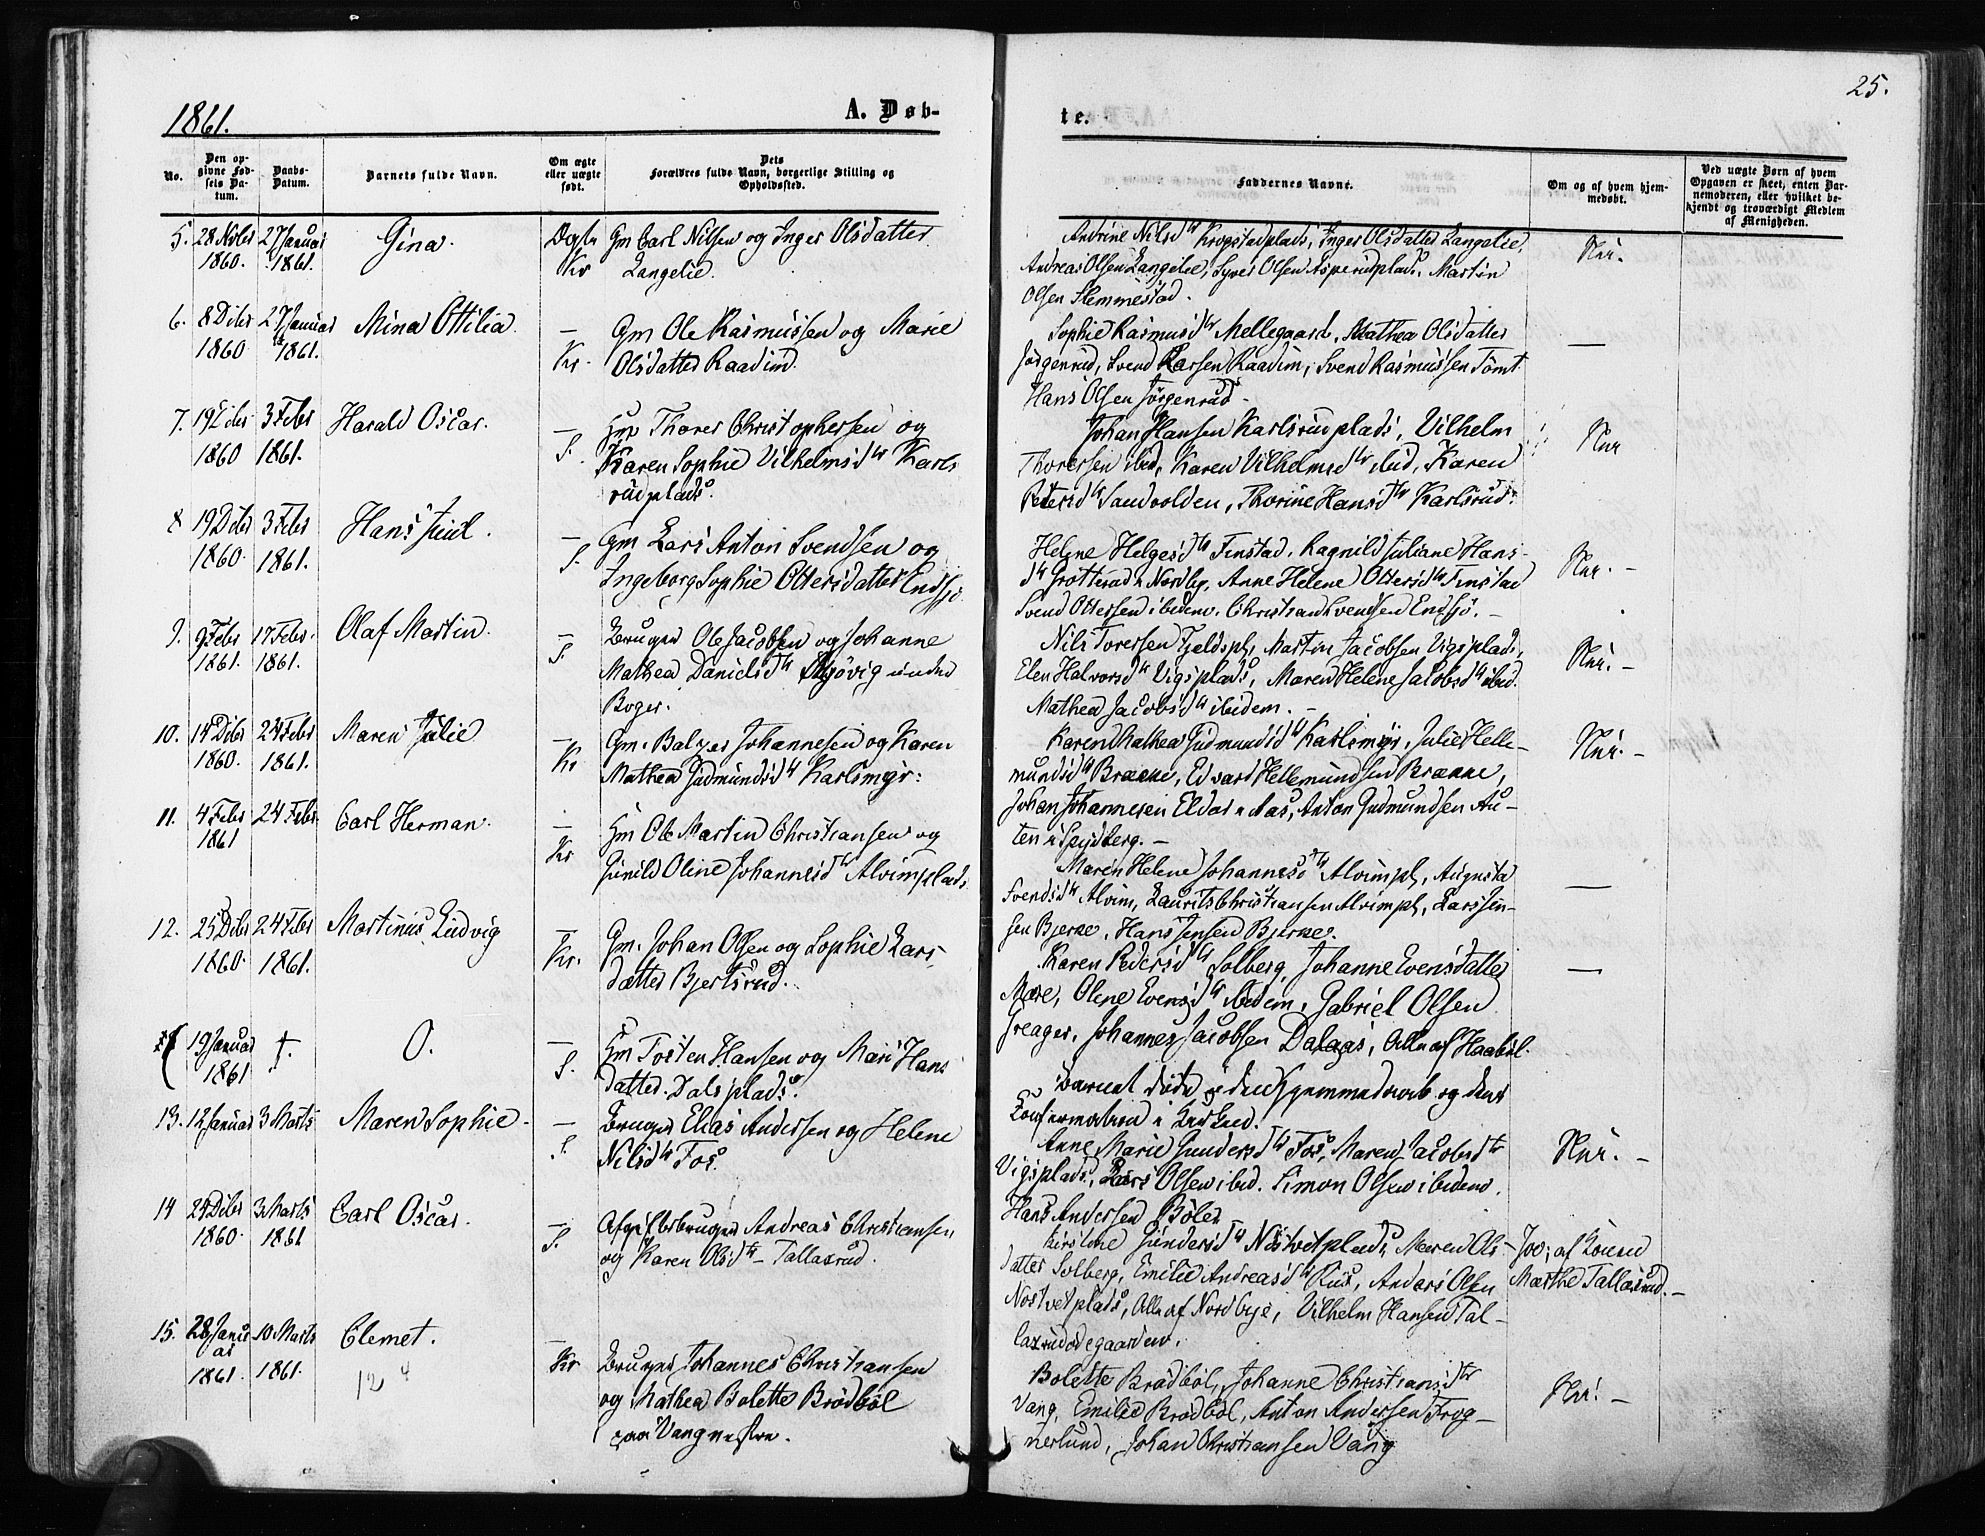 25.
1861.
A. Døb-
te.
No.
Den op-
givne Fød-
sels Da-
tum.
Daabs-
Datum.
Barnets fulde Navn.
Om ægte
eller uægte
født.
Dets
Forældres fulde Navn, borgerlige Stilling og
Opholdssted.
Faddernes Navne.
Om og af hvem hjem-
medøbt.
Ved uægte Børn af hvem
Opgaven er skeet, enten Bar-
nemoderen, eller hvilket be-
kjendt og troværdigt Medlem
af Menigheden.
5. 28 Nvbr 27 Januar Gina. Gm Carl Nilsen og Inger Olsdatter
1860. 1861. Kr Langelie.
Andrine Nilsdtr Krogstadplads, Inger Olsdatter Langelie,
Andreas Olsen Langelie, Syver Olsen Asperudplads, Martin
Olsen Hemmestad.
6. 8 Dcbr 27 Januar Mina Ottilia. — Gm Ole Rasmussen og Marie
1860 1861. Kr. Olsdatter Raadim.
Sophie Rasmusdtr Mellegaard, Mathea Olsdatter
Jørgenrud, Svend Larsen Raadim, Svend Rasmussen Tomt
Hans Olsen Jørgenrud.
7. 19 Dcbr 3 Febr Harald Oscar. — Hm Thorer Christophersen og
1860 1861. S. Karen Sophie Vilhelmsdtr Karls
rudplads.
Johan Hansen Karlsrudplads, Vilhelm
Thoresen ibid, Karen Vilhelmsdtr ibid, Karen
Petersdtr Sandvolden, Thorine Hansdtr Karlsrud.
8 19 Dcbr 3 Febr Hans Juul. — Gm Lars Anton Svendsen og
1860. 1861. S. Ingeborg Sophie Ottersdatter Endsjø
Helene Helgesdtr Finstad, Ragnild Juliane Hans-
dtr Grøtterød i Nordby, Anne Helene Ottersdtr Finstad
Svend Ottersen ibidem. Christian Svendsen Endsjø. —
9. 9 Febr 17 Febr. Olaf Martin. — Bruger Ole Jacobsen og Johanne
1861. 1861. S. Mathea Danielsdtr under
Boger.
Nils Toresen Fjeldspl, Martin Jacobsen Vigsplads,
Elen Halvorsdtr Vigsplads, Maren Helene Jacobsdtr ibid.
Mathea Jacobsdtr ibidem. —
10. 14 Dcbr 24 Febr Maren Julie — Gm. Balzer Johannesen og Karen
1860. 1861. Kr Mathea Gudmundsdtr Karlsmyr.
Karen Mathea Gudmundsdtr Karlsmyr, Julie Helle-
mundsdtr Brænne, Edvard Hellemundsen Brænne,
Johan Johannesen Eldor i Aas, Anton Gudmundsen Au-
ten i Spydberg. —
11. 4 Febr 24 Febr. Carl Herman. — Hm Ole Martin Christiansen og
1861 Kr Gunild Oline Johannesdtr Alvimplads.
Maren Helene Johannesdtr Alvimpl, Augusta
Svendsdtr Alvim, Laurits Christiansen Alvimpl, Lars Jen-
sen Bjerke, Hans Jensen Bjerke.
12. 25 Dcbr 24 Febr Martinus Ludvig — Gm. Johan Olsen og Sophie Lars
1860. 1861. Kr. datter Bjertsrud.
Karen Pedersdtr Solberg, Johanne Evensdatter
Mære, Olene Evensdtr ibidem, Gabriel Olsen
Greager, Johannes Jacobsen Dalaas, Alle af Haabøl.
19 Januar †. O. — Hm Tosten Hansen og Mari Hans
1861 S. datter Dalsplads.
Barnet døde
13. 12 Januar 3 Marts Maren Sophie. — Bruger Elias Andersen og Helene
S. Nilsdtr Fos.
Anne Marie Gundersdtr Fos, Maren Jacobsdtr
Vigsplads, Lars Olsen ibid. Simon Olsen ibidem.
Hans Andersen Bøler
14 24 Dcbr 3 Marts Carl Oscar. — Andreas Christiansen
1860. 1861 S. og Karen Olsdtr — Tallaxrud.
Kirstine Gundersdtr Nøstvetplads, Maren Ols-
datter Solberg, Emilie Andreasdtr Ruis, Anders Olsen
Nøstvetplads, Alle af Nordbye, Vilhelm Hansen Tal-
laxrudødegaarden.
Jo; af Konen
Marthe Tallaxrud. —
15. 28 Janu 10 Marts Clemet. —
ar
1861. 1861. 12 Kr Bruger Johannes Christiansen
og Mathea Bolette Brødbøl
paa Vang nestre.
Bolette Brødbøl, Johanne Christiansdtr
Vang, Emilie Brødbøl, Anton Andersen Frog-
nerlund, Johan Christiansen Vang